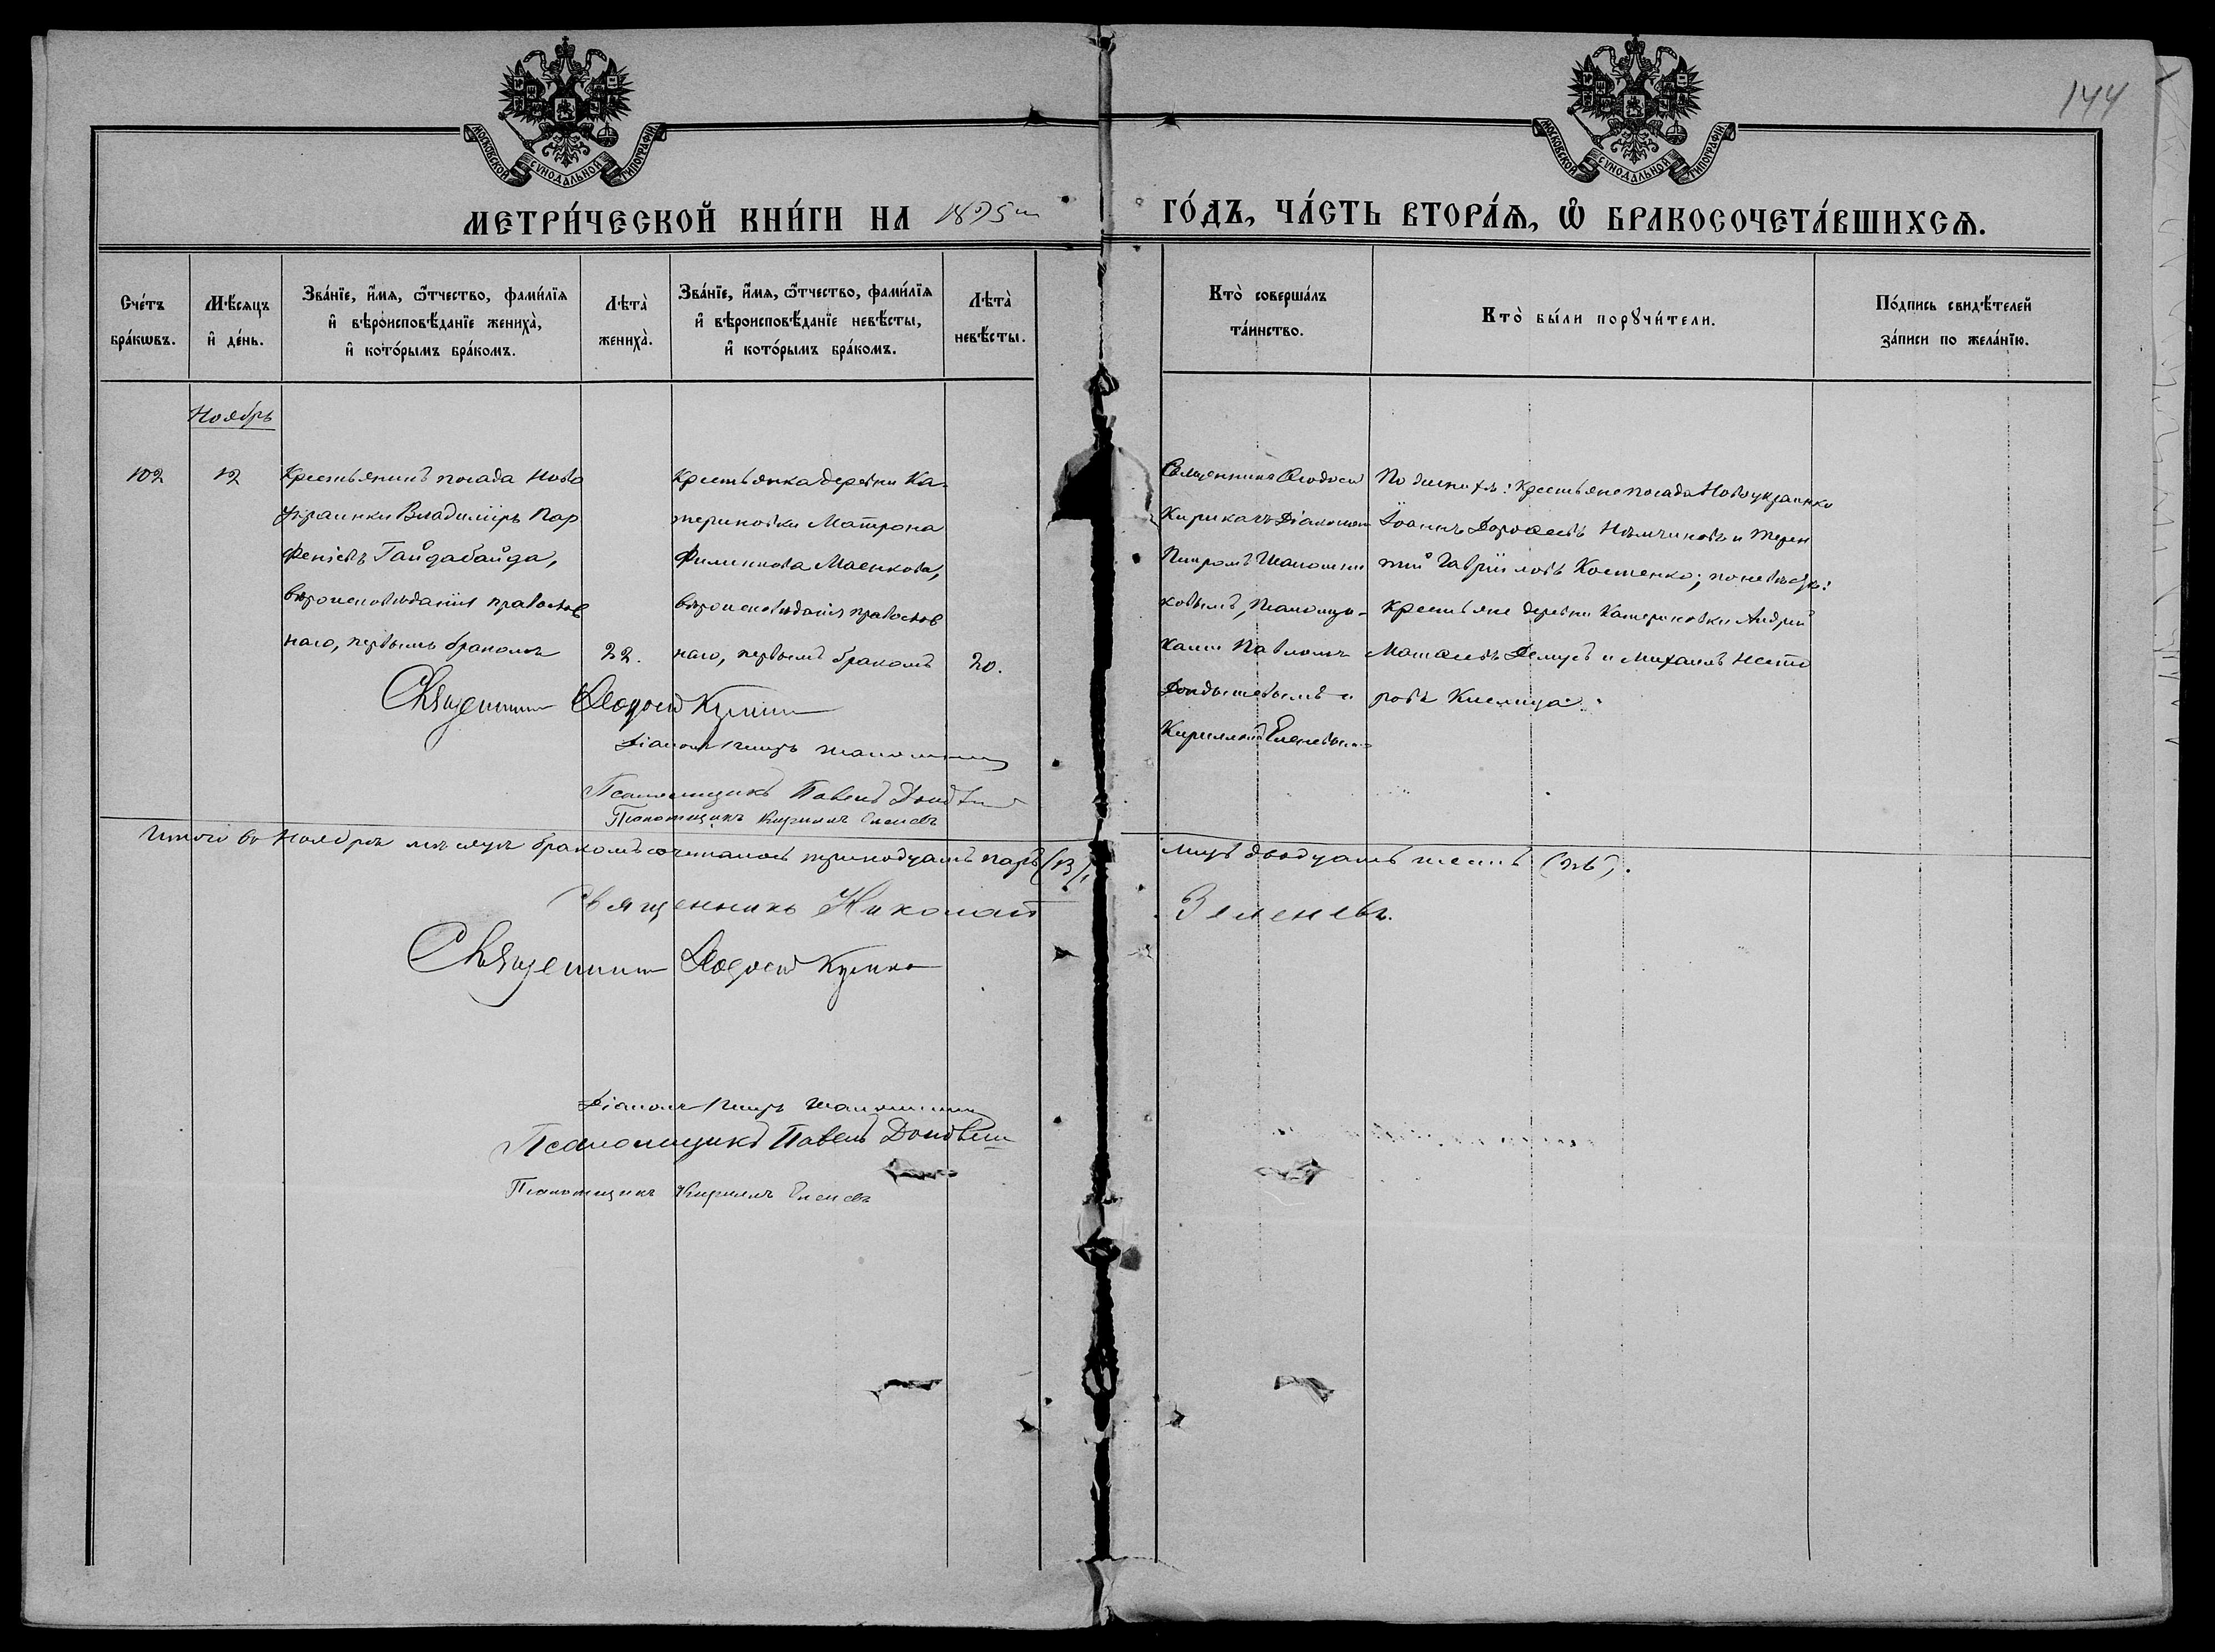 144
МОСКОВСКОЙ СѴНОДАЛЬНОЙ ТИПОГРАФІИ
МОСКОВСКОЙ СѴНОДАЛЬНОЙ ТИПОГРАФІИ
МЕТРИ́ЧЕСКОЙ КНИ́ГИ НА 1895 ГО́ДЪ, ЧА́СТЬ ВТОРА́Ѧ, Ѽ БРАКОСОЧЕТА́ВШИХСѦ.
Сче́тъ бра́кѡвъ.
Мѣ́сяцъ и҆ де́нь.
Зва́нїе, и҆́мѧ, ѻ҆́тчество, фами́лїѧ и҆ вѣроисповѣ́данїе жениха̀, и҆ кото́рымъ бра́комъ.
Лѣта̀ жениха̀.
Зва́нїе, и҆́мѧ, ѻ҆́тчество, фами́лїѧ и҆ вѣроисповѣ́данїе невѣ́сты, и҆ кото́рымъ бра́комъ.
Лѣта̀ невѣ́сты.
Кто̀ соверша́лъ та́инство.
Кто̀ бы́ли порꙋчи́тели.
По́дпись свидѣ́телей за́писи по жела́нїю.
Ноябрь
102
12
Крестьянинъ посада Ново
украинки Владиміръ Пар
феніевъ Гайдабайда,
вѣроисповѣданія православ
наго, первымъ бракомъ
22.
Крестьянка деревни Ка-
териновки Матрона
Филиппова Маенкова,
вѣроисповѣданія православ
наго, первымъ бракомъ
20.
Священникъ Ѳеодосій
Діакономъ
Петромъ
ковымъ, Псаломщи-
ками Павломъ
и
Кирилломъ Еленевымъ
По женихѣ: крестьяне посада Новоукраинки
Іоаннъ Дороѳеевъ Нѣмчиновъ и Терен
тій Гавріиловъ Костенко; по невѣстѣ:
крестьяне деревни Катериновки Андрей
Матѳеевъ Демусъ и Михаилъ Несто
ровъ Кислица.
Священникъ Ѳеодосій
Діаконъ Петръ
Псаломщикъ Павелъ
Псаломщикъ Кириллъ Еленевъ
Итого въ Ноябрѣ мѣсяцѣ бракомъ сочеталось тринадцать паръ (13), лицъ двадцать шесть (26).
Священникъ Николай Зеленевъ.
Священникъ Ѳеодосій
Діаконъ Петръ
Псаломщикъ Павелъ
Псаломщикъ Кириллъ Еленевъ